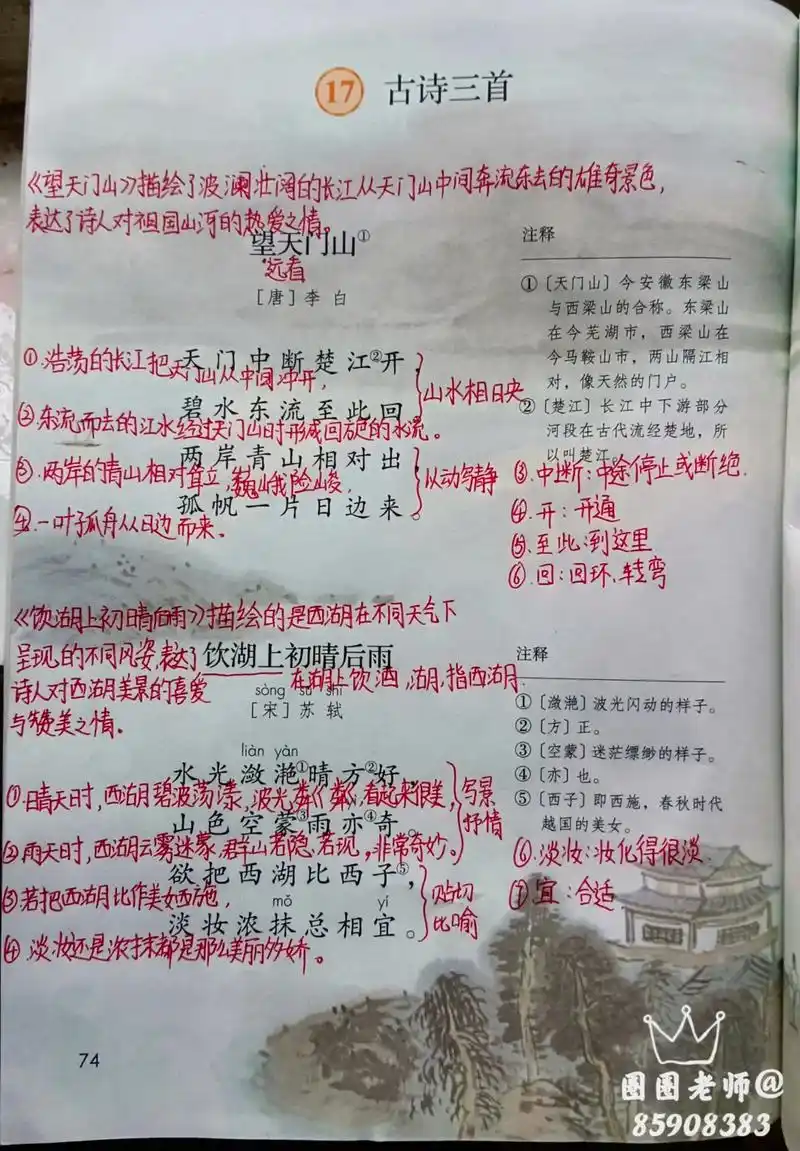 17 古诗三首
《望天门山》描绘了波澜壮阔的长江从天门山中间奔流东去的雄奇景色，
表达了诗人对祖国山河的热爱之情。
望天门山①
远看
[唐] 李 白
①.浩荡的长江把天门山从中间冲开，
天门中断楚江②开，
②东流而去的江水经过天门山时形成回旋的水流。
碧水东流至此回。
山水相映
③.两岸的青山相对耸立，巍峨险峻。
两岸青山相对出，
④.一叶孤舟从日边而来。
孤帆一片日边来。
以动写静
注释
①〔天门山〕今安徽东梁山
与西梁山的合称。东梁山
在今芜湖市，西梁山在
今马鞍山市，两山隔江相
对，像天然的门户。
②〔楚江〕长江中下游部分
河段在古代流经楚地，所
以叫楚江。
③.中断：中途停止或断绝.
④.开：开通
⑤.至此：到这里
⑥.回：回环、转弯
《饮湖上初晴后雨》描绘的是西湖在不同天气下
呈现的不同风姿，表达了
诗人对西湖美景的喜爱
与赞美之情。
饮湖上初晴后雨
在湖上饮酒，湖，指西湖.
sòng sū shì
[宋] 苏 轼
liàn yàn
水光潋滟①晴方②好，
①.晴天时，西湖碧波荡漾，波光粼粼，看起来很美，
山色空蒙③雨亦④奇。
②雨天时，西湖云雾迷蒙，群山若隐若现，非常奇妙。
写景
抒情
欲把西湖比西子⑤，
③若把西湖比作美女西施，
mǒ yí
淡妆浓抹总相宜。
④ 淡妆还是浓抹都是那么美丽多娇。
贴切
比喻
注释
①〔潋滟〕波光闪动的样子。
②〔方〕正。
③〔空蒙〕迷茫缥缈的样子。
④〔亦〕也。
⑤〔西子〕即西施，春秋时代
越国的美女。
⑥.淡妆：妆化得很淡.
⑦宜：合适
74
圈圈老师@
85908383